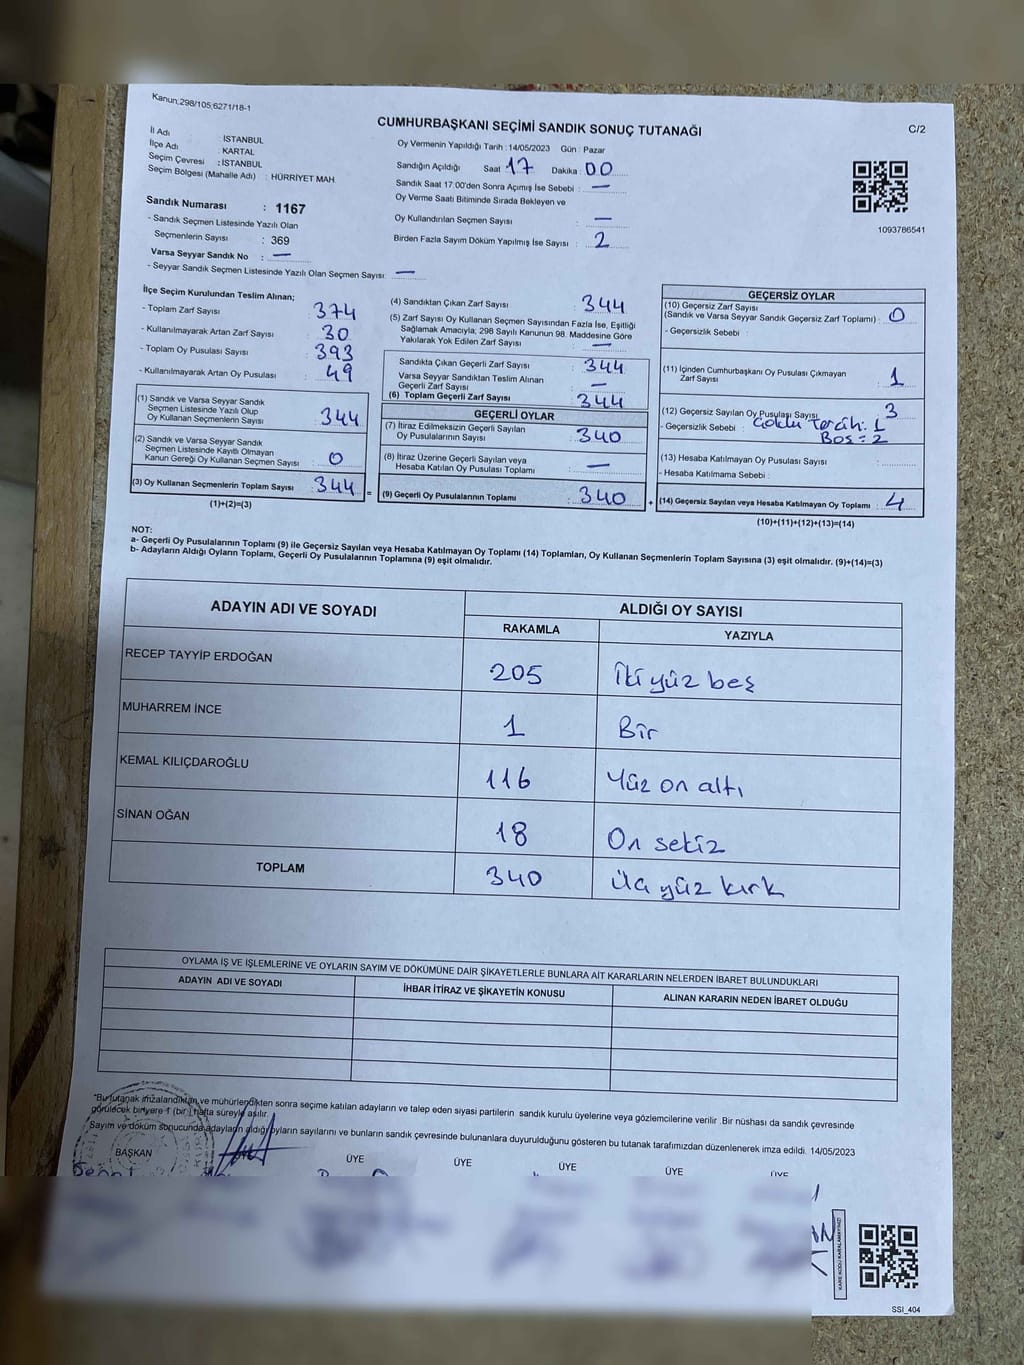 Kanun;298/105;6271/18-1
CUMHURBAŞKANI SEÇİMİ SANDIK SONUÇ TUTANAĞI
C/2
İl Adı : İSTANBUL
İlçe Adı : KARTAL
Seçim Çevresi : İSTANBUL
Seçim Bölgesi (Mahalle Adı) : HÜRRİYET MAH.
Oy Vermenin Yapıldığı Tarih : 14/05/2023 Gün : Pazar
Sandığın Açıldığı Saat 17 Dakika : 00
Sandık Saat 17.00'den Sonra Açımış İse Sebebi : —
Oy Verme Saati Bitiminde Sırada Bekleyen ve
Oy Kullandırılan Seçmen Sayısı : —
Birden Fazla Sayım Döküm Yapılmış İse Sayısı : 2
1093786541
Sandık Numarası : 1167
- Sandık Seçmen Listesinde Yazılı Olan
Seçmenlerin Sayısı : 369
Varsa Seyyar Sandık No : —
- Seyyar Sandık Seçmen Listesinde Yazılı Olan Seçmen Sayısı: —
İlçe Seçim Kurulundan Teslim Alınan;
- Toplam Zarf Sayısı : 374
- Kullanılmayarak Artan Zarf Sayısı : 30
- Toplam Oy Pusulası Sayısı : 393
- Kullanılmayarak Artan Oy Pusulası : 49
(1) Sandık ve Varsa Seyyar Sandık
Seçmen Listesinde Yazılı Olup
Oy Kullanan Seçmenlerin Sayısı : 344
(2) Sandık ve Varsa Seyyar Sandık
Seçmen Listesinde Kayıtlı Olmayan
Kanun Gereği Oy Kullanan Seçmen Sayısı : 0
(3) Oy Kullanan Seçmenlerin Toplam Sayısı : 344
(1)+(2)=(3)
(4) Sandıktan Çıkan Zarf Sayısı : 344
(5) Zarf Sayısı Oy Kullanan Seçmen Sayısından Fazla İse, Eşitliği
Sağlamak Amacıyla, 298 Sayılı Kanunun 98. Maddesine Göre
Yakılarak Yok Edilen Zarf Sayısı : —
Sandıkta Çıkan Geçerli Zarf Sayısı : 344
Varsa Seyyar Sandıktan Teslim Alınan
Geçerli Zarf Sayısı : —
(6) Toplam Geçerli Zarf Sayısı : 344
GEÇERLİ OYLAR
(7) İtiraz Edilmeksizin Geçerli Sayılan
Oy Pusulalarının Sayısı : 340
(8) İtiraz Üzerine Geçerli Sayılan veya
Hesaba Katılan Oy Pusulası Toplamı : —
= (9) Geçerli Oy Pusulalarının Toplamı : 340
GEÇERSİZ OYLAR
(10) Geçersiz Zarf Sayısı
(Sandık ve Varsa Seyyar Sandık Geçersiz Zarf Toplamı) : 0
- Geçersizlik Sebebi :
(11) İçinden Cumhurbaşkanı Oy Pusulası Çıkmayan
Zarf Sayısı : 1
(12) Geçersiz Sayılan Oy Pusulası Sayısı : 3
- Geçersizlik Sebebi : Çoklu Tercih: 1
Boş = 2
(13) Hesaba Katılmayan Oy Pusulası Sayısı :
- Hesaba Katılmama Sebebi :
+ (14) Geçersiz Sayılan veya Hesaba Katılmayan Oy Toplamı : 4
(10)+(11)+(12)+(13)=(14)
NOT:
a- Geçerli Oy Pusulalarının Toplamı (9) ile Geçersiz Sayılan veya Hesaba Katılmayan Oy Toplamı (14) Toplamları, Oy Kullanan Seçmenlerin Toplam Sayısına (3) eşit olmalıdır. (9)+(14)=(3)
b- Adayların Aldığı Oyların Toplamı, Geçerli Oy Pusulalarının Toplamına (9) eşit olmalıdır.
ADAYIN ADI VE SOYADI
ALDIĞI OY SAYISI
RAKAMLA
YAZIYLA
RECEP TAYYİP ERDOĞAN 205 İki yüz beş
MUHARREM İNCE 1 Bir
KEMAL KILIÇDAROĞLU 116 Yüz on altı
SİNAN OĞAN 18 On sekiz
TOPLAM 340 Üç yüz kırk
OYLAMA İŞ VE İŞLEMLERİNE VE OYLARIN SAYIM VE DÖKÜMÜNE DAİR ŞİKAYETLERLE BUNLARA AİT KARARLARIN NELERDEN İBARET BULUNDUKLARI
ADAYIN ADI VE SOYADI
İHBAR İTİRAZ VE ŞİKAYETİN KONUSU
ALINAN KARARIN NEDEN İBARET OLDUĞU
"Bu tutanak imzalandıktan ve mühürlendikten sonra seçime katılan adayların ve talep eden siyasi partilerin sandık kurulu üyelerine veya gözlemcilerine verilir .Bir nüshası da sandık çevresinde
görülecek bir yere 1 (bir ) hafta süreyle asılır.
Sayım ve döküm sonucunda adayların aldığı oyların sayılarını ve bunların sandık çevresinde bulunanlara duyurulduğunu gösteren bu tutanak tarafımızdan düzenlenerek imza edildi. 14/05/2023
BAŞKAN
ÜYE
ÜYE
ÜYE
ÜYE
ÜYE
KARE KODU KARALAMAYINIZ!
SSI_404